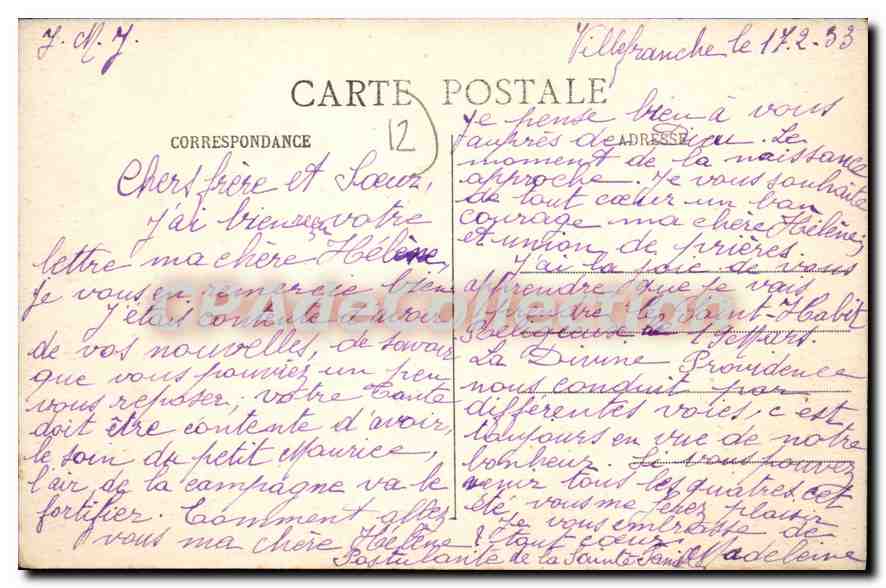 J. M. J.
Villefranche le 17.2-33
CARTE POSTALE
12
CORRESPONDANCE
ADRESSE
Chers frère et Sœur,
J'ai bien reçu votre
lettre ma chère Hélène,
je vous en remercie bien
J'étais contente d'avoir
de vos nouvelles, de savoir
que vous pouviez un peu
vous reposer; votre tante
doit être contente d'avoir,
le soin du petit Maurice,
l'air de la campagne va le
fortifier. Comment allez
vous ma chère Hélène ?
Je pense bien à vous
auprès de Dieu. Le
moment de la naissance
approche. Je vous souhaite
de tout cœur un bon
courage ma chère Hélène;
et union de prières.
J'ai la joie de vous
apprendre que je vais
prendre le Saint-Habit
Religieuse le 19 Mars.
La Divine Providence
nous conduit par
différentes voies, c'est
toujours en vue de notre
bonheur. Si vous pouvez
venir tous les quatres, cet
été vous me ferez plaisir
Je vous embrasse de
tout cœur
Madeleine
Postulante de la Sainte Famille
CPA de Collection